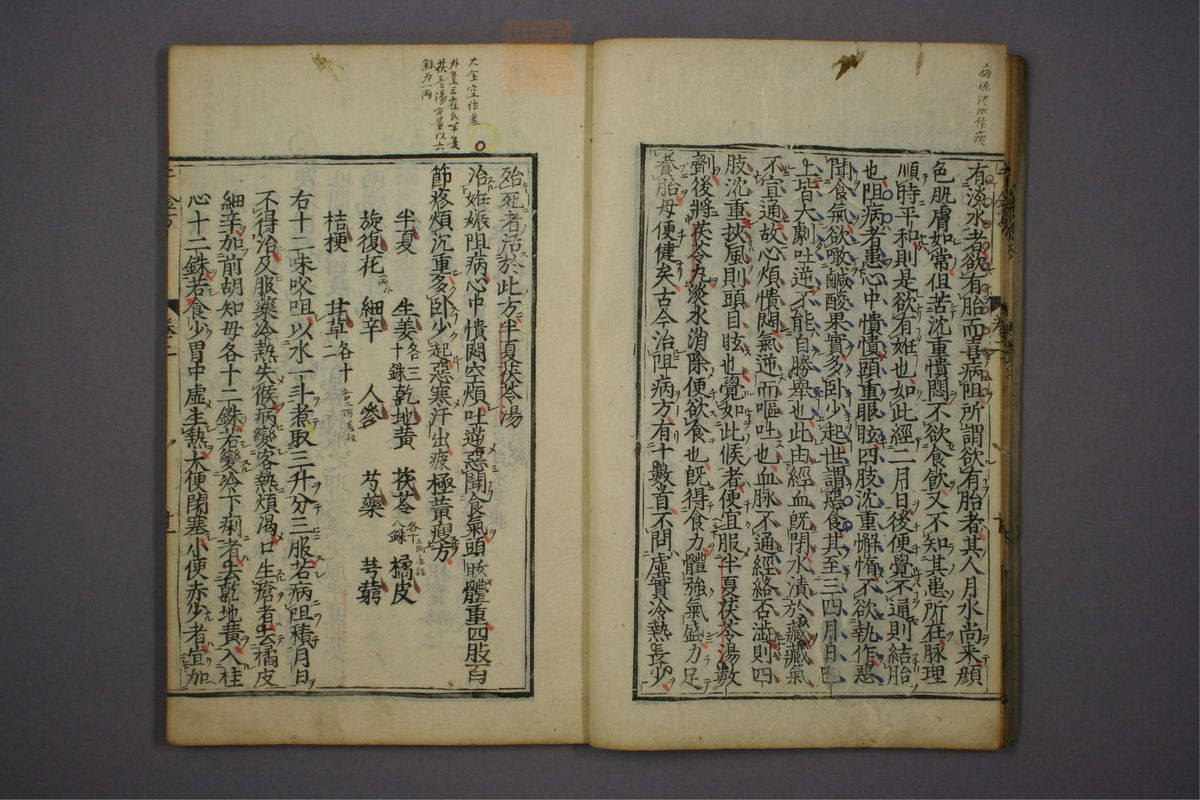 病源淡水作痰
有淡水者欲有胎而喜病阻所謂欲有胎者其人月水尚來顏
色肌膚如常但苦沈重憒悶不欲食飲又不知其患所在脉理
順時平和則是欲有娠也如此經二月日後便覺不通則結胎
也阻病者患心中憒憒頭重眼眩四肢沈重懈惰不欲執作惡
聞食氣欲噉鹹酸果實多卧少起世謂惡食其至三四月日已
上皆大劇吐逆不能自勝舉也此由經血既閉水漬於藏藏氣
不宜通故心煩憒悶氣逆而嘔吐也血脉不通經絡否澁則四
肢沈重挾風則頭目眩也覺如此候者便宜服半夏茯苓湯數
劑後將茯苓丸淡水消除便欲食也既得食力體強氣盛力足
養胎母便健矣古今治阻病方有十數首不問虛實冷熱長少
殆死者活於此方半夏茯苓湯
治妊娠阻病心中憒悶空煩吐逆惡聞食氣頭眩體重四肢百
節疼煩沉重多卧少起惡寒汗出疲極黃瘦方
半夏 生姜各三十銖 乾地黃 茯苓各十八銖 橘皮
旋復花 細辛 人參 芍藥 芎藭
桔梗 甘草各十二
右十二味㕮咀以水一斗煮取三升分三服若病阻積月日
不得治及服藥冷熱失候病變客熱煩渴口生瘡者去橘皮
細辛加前胡知母各十二銖若變冷下痢者去乾地黃入桂
心十二銖若食少胃中虛生熱大便閉塞小便赤少者宜加